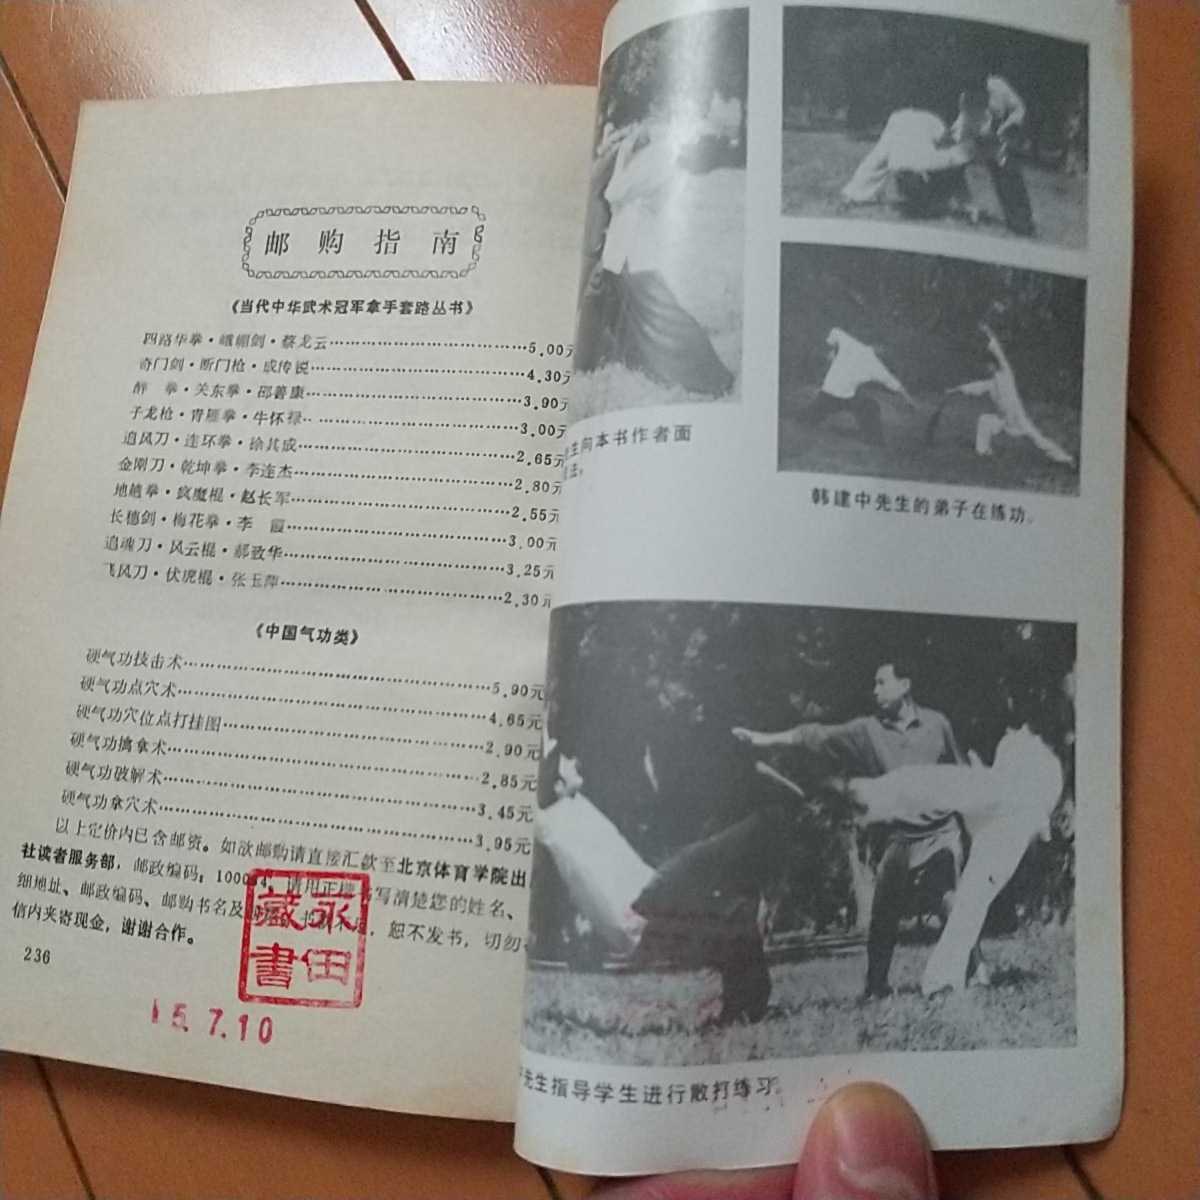 邮购指南
《当代中华武术冠军拿手套路丛书》
四路华拳·峨嵋剑·蔡龙云……5.00元
奇门剑·断门枪·成传锐……4.30元
醉 拳·关东拳·邵善康……3.90元
子龙枪·青雁拳·牛怀禄……3.00元
追风刀·连环拳·徐其成……2.65元
金刚刀·乾坤拳·李连杰……2.80元
地趟拳·疯魔棍·赵长军……2.55元
长穗剑·梅花拳·李 霞……3.00元
追魂刀·风云棍·郝致华……3.25元
飞风刀·伏虎棍·张玉萍……2.30元
《中国气功类》
硬气功技击术……5.90元
硬气功点穴术……4.65元
硬气功穴位点打挂图……2.90元
硬气功擒拿术……2.85元
硬气功破解术……3.45元
硬气功拿穴术……3.95元
以上定价内已含邮资。如欲邮购请直接汇款至北京体育学院出
社读者服务部，邮政编码：1000 4，请用正楷 写清楚您的姓名、
细地址、邮政编码、邮购书名及 书款不足，恕不发书，切勿
信内夹寄现金，谢谢合作。
236
永田
藏書
15.7.10
生向本书作者面
韩建中先生的弟子在练功。
先生指导学生进行散打练习。